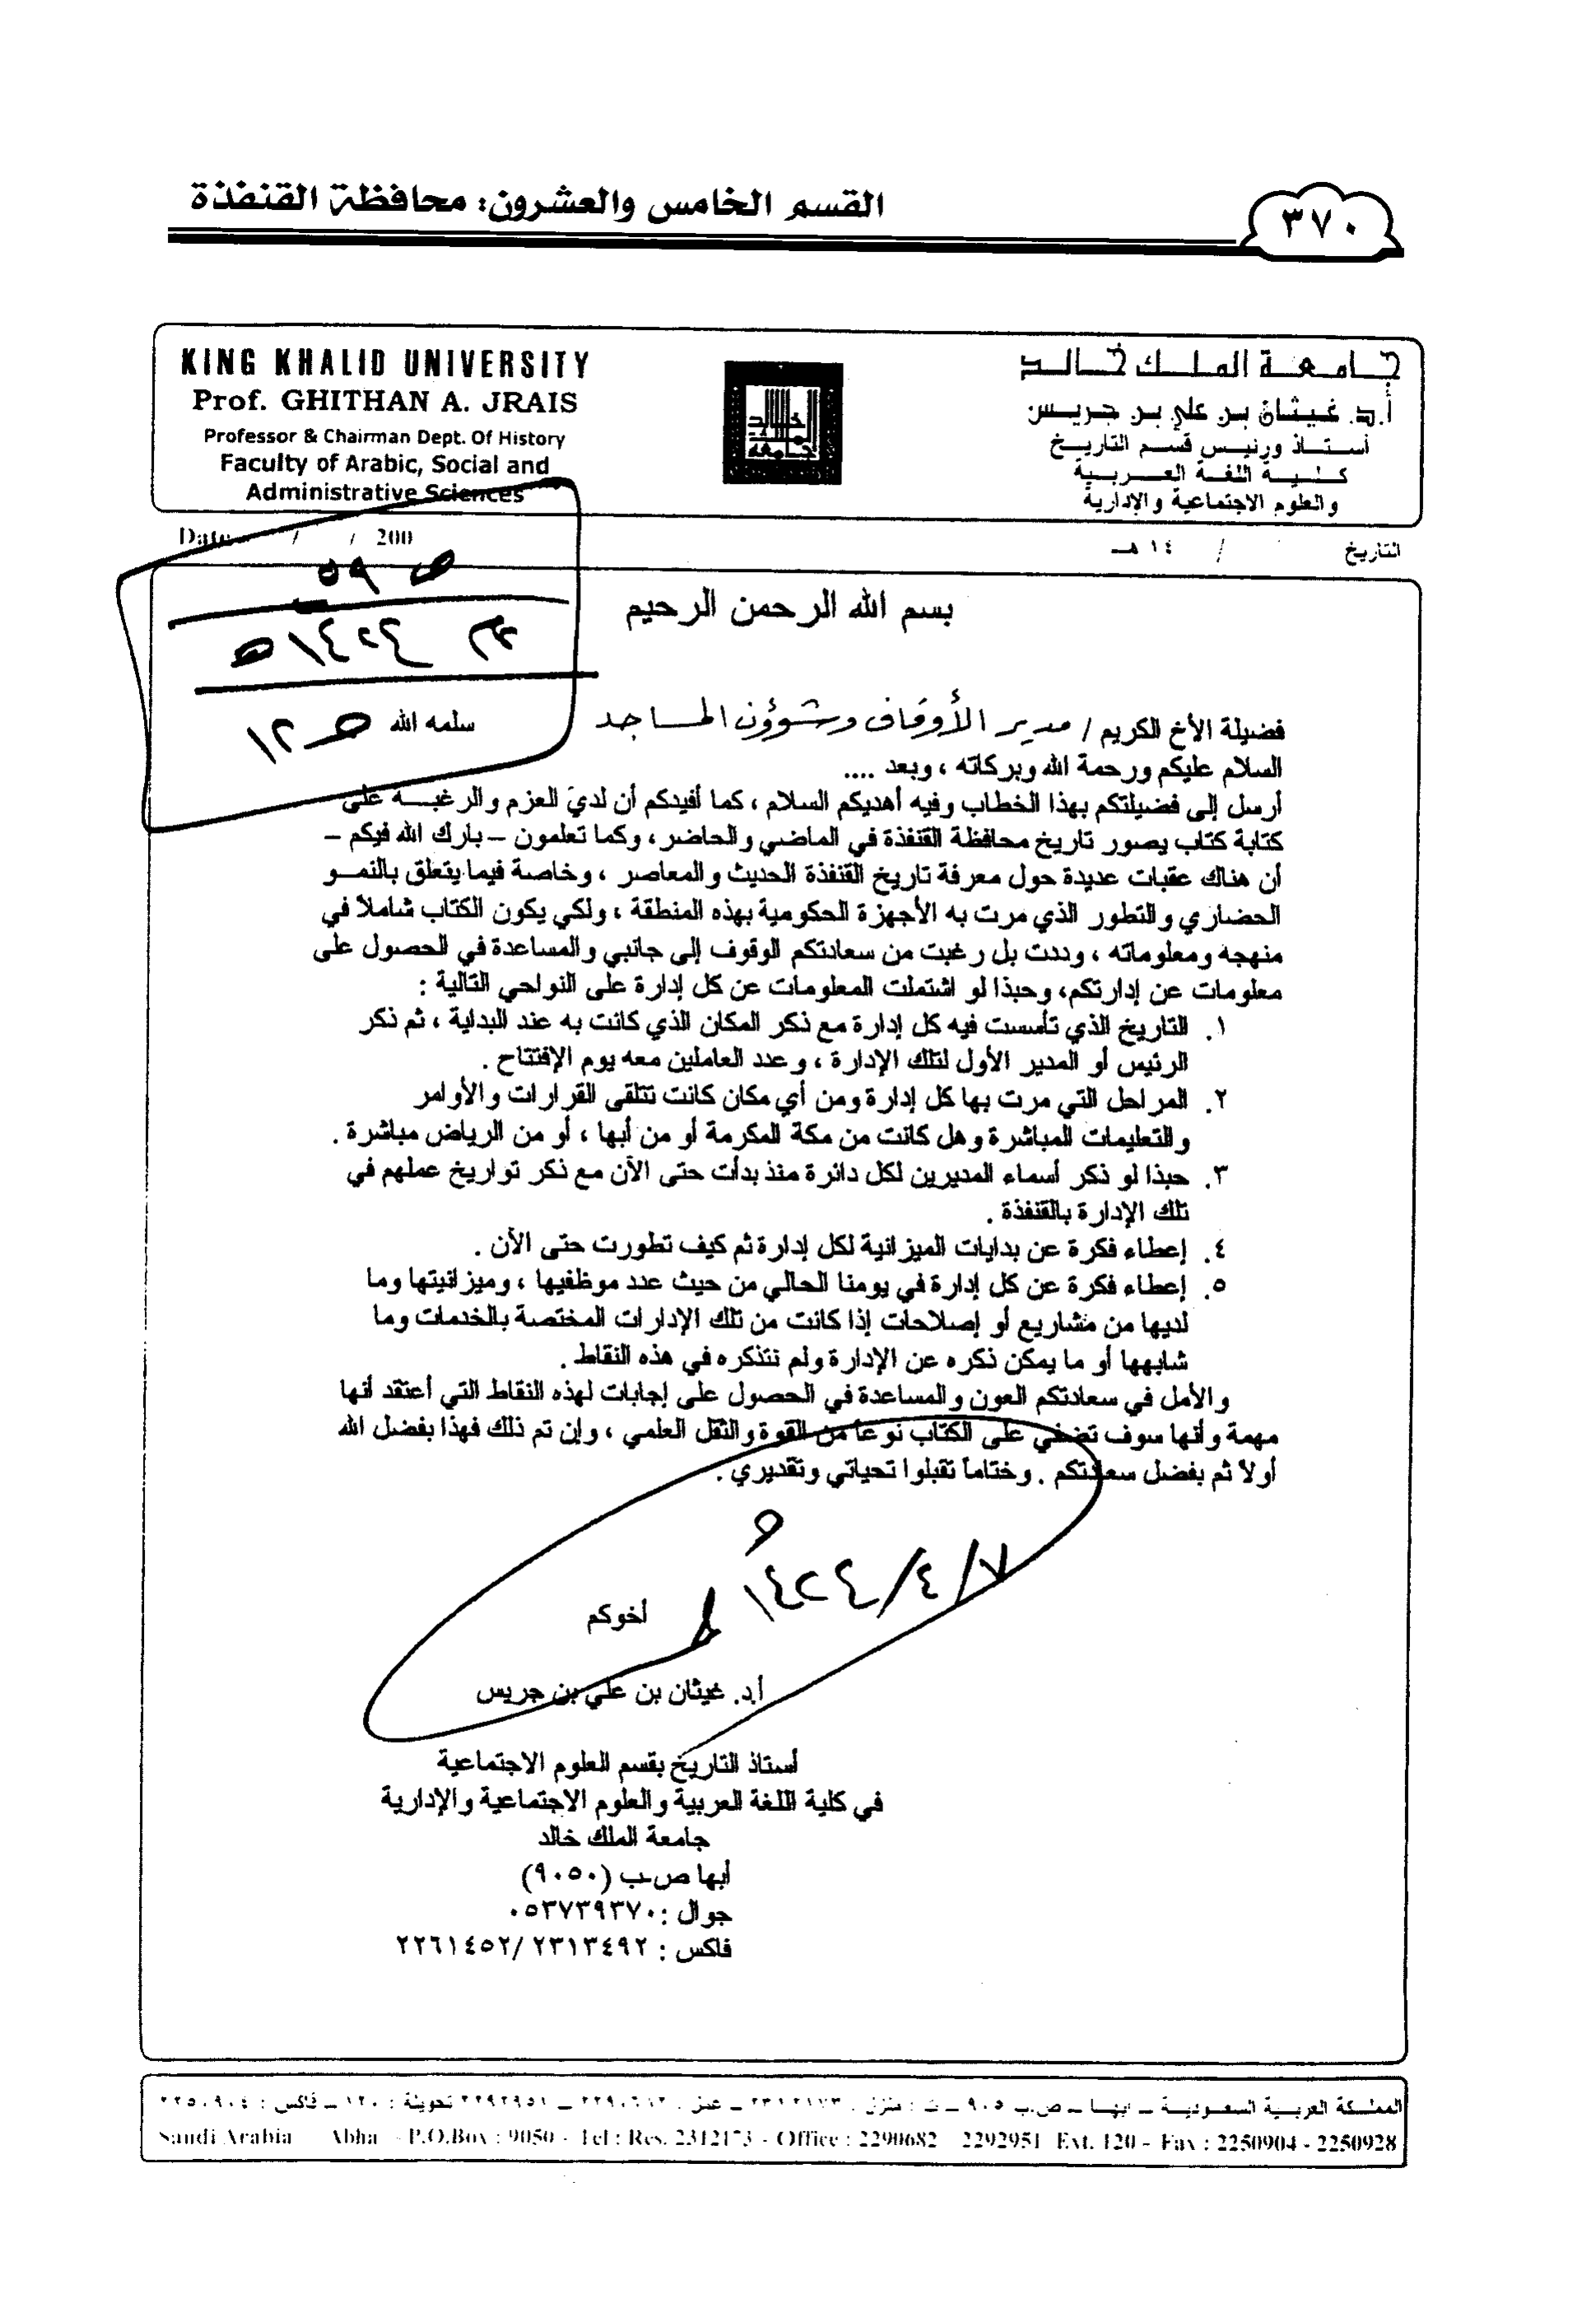 القسم الخامس والعشرون: محافظة القنفذة
٣٧٠
KING KHALID UNIVERSITY
Prof. GHITHAN A. JRAIS
Professor & Chairman Dept. Of History
Faculty of Arabic, Social and
Administrative Sciences
جامعة الملك خالد
أ.د. غيثان بن علي بن جريس
أستاذ ورئيس قسم التاريخ
كلية اللغة العربية
والعلوم الاجتماعية والإدارية
Date / / 200
التاريخ / ١٤ هـ
ص ٥٩
١٤٢٤هـ
ص ١٢
بسم الله الرحمن الرحيم
فضيلة الأخ الكريم / مدير الأوقاف وشؤون المساجد سلمه الله
السلام عليكم ورحمة الله وبركاته ، وبعد ....
أرسل إلى فضيلتكم بهذا الخطاب وفيه أهديكم السلام ، كما أفيدكم أن لديّ العزم والرغبة على
كتابة كتاب يصور تاريخ محافظة القنفذة في الماضي والحاضر ، وكما تعلمون – بارك الله فيكم –
أن هناك عقبات عديدة حول معرفة تاريخ القنفذة الحديث والمعاصر ، وخاصة فيما يتعلق بالنمو
الحضاري والتطور الذي مرت به الأجهزة الحكومية بهذه المنطقة ، ولكي يكون الكتاب شاملاً في
منهجه ومعلوماته ، وددت بل رغبت من سعادتكم الوقوف إلى جانبي والمساعدة في الحصول على
معلومات عن إدارتكم، وحبذا لو اشتملت المعلومات عن كل إدارة على النواحي التالية :
١. التاريخ الذي تأسست فيه كل إدارة مع ذكر المكان الذي كانت به عند البداية ، ثم ذكر
الرئيس أو المدير الأول لتلك الإدارة ، وعدد العاملين معه يوم الإفتتاح .
٢. المراحل التي مرت بها كل إدارة ومن أي مكان كانت تتلقى القرارات والأوامر
والتعليمات المباشرة وهل كانت من مكة المكرمة أو من أبها ، أو من الرياض مباشرة .
٣. حبذا لو ذكر أسماء المديرين لكل دائرة منذ بدأت حتى الآن مع ذكر تواريخ عملهم في
تلك الإدارة بالقنفذة .
٤. إعطاء فكرة عن بدايات الميزانية لكل إدارة ثم كيف تطورت حتى الآن .
٥. إعطاء فكرة عن كل إدارة في يومنا الحالي من حيث عدد موظفيها ، وميزانيتها وما
لديها من مشاريع أو إصلاحات إذا كانت من تلك الإدارات المختصة بالخدمات وما
شابهها أو ما يمكن ذكره عن الإدارة ولم نتذكره في هذه النقاط .
والأمل في سعادتكم العون والمساعدة في الحصول على إجابات لهذه النقاط التي أعتقد أنها
مهمة وأنها سوف تضفي على الكتاب نوعاً من القوة والثقل العلمي ، وإن تم ذلك فهذا بفضل الله
أولاً ثم بفضل سعادتكم . وختاماً تقبلوا تحياتي وتقديري .
٧/٤/١٤٢٤
أخوكم
أ.د. غيثان بن علي بن جريس
أستاذ التاريخ بقسم العلوم الاجتماعية
في كلية اللغة العربية والعلوم الاجتماعية والإدارية
جامعة الملك خالد
أبها ص.ب (٩٠٥٠)
جوال : ٠٥٣٧٣٩٣٧٠
فاكس : ٢٣١٣٤٩٢/ ٢٢٦١٤٥٢
المملكة العربية السعودية – أبها – ص.ب ٩٠٥ – ت : منزل : ٢٣١٢١٧٣ – عمل : – ٢٢٩٢٩٥١ تحويلة : ١٢٠ – فاكس : ٢٢٥٠٩٠٤
Saudi Arabia Abha - P.O.Box : 9050 - Tel : Res. 2312173 - Office : 2290682 2292951 Ext. 120 - Fax : 2250904 - 2250928